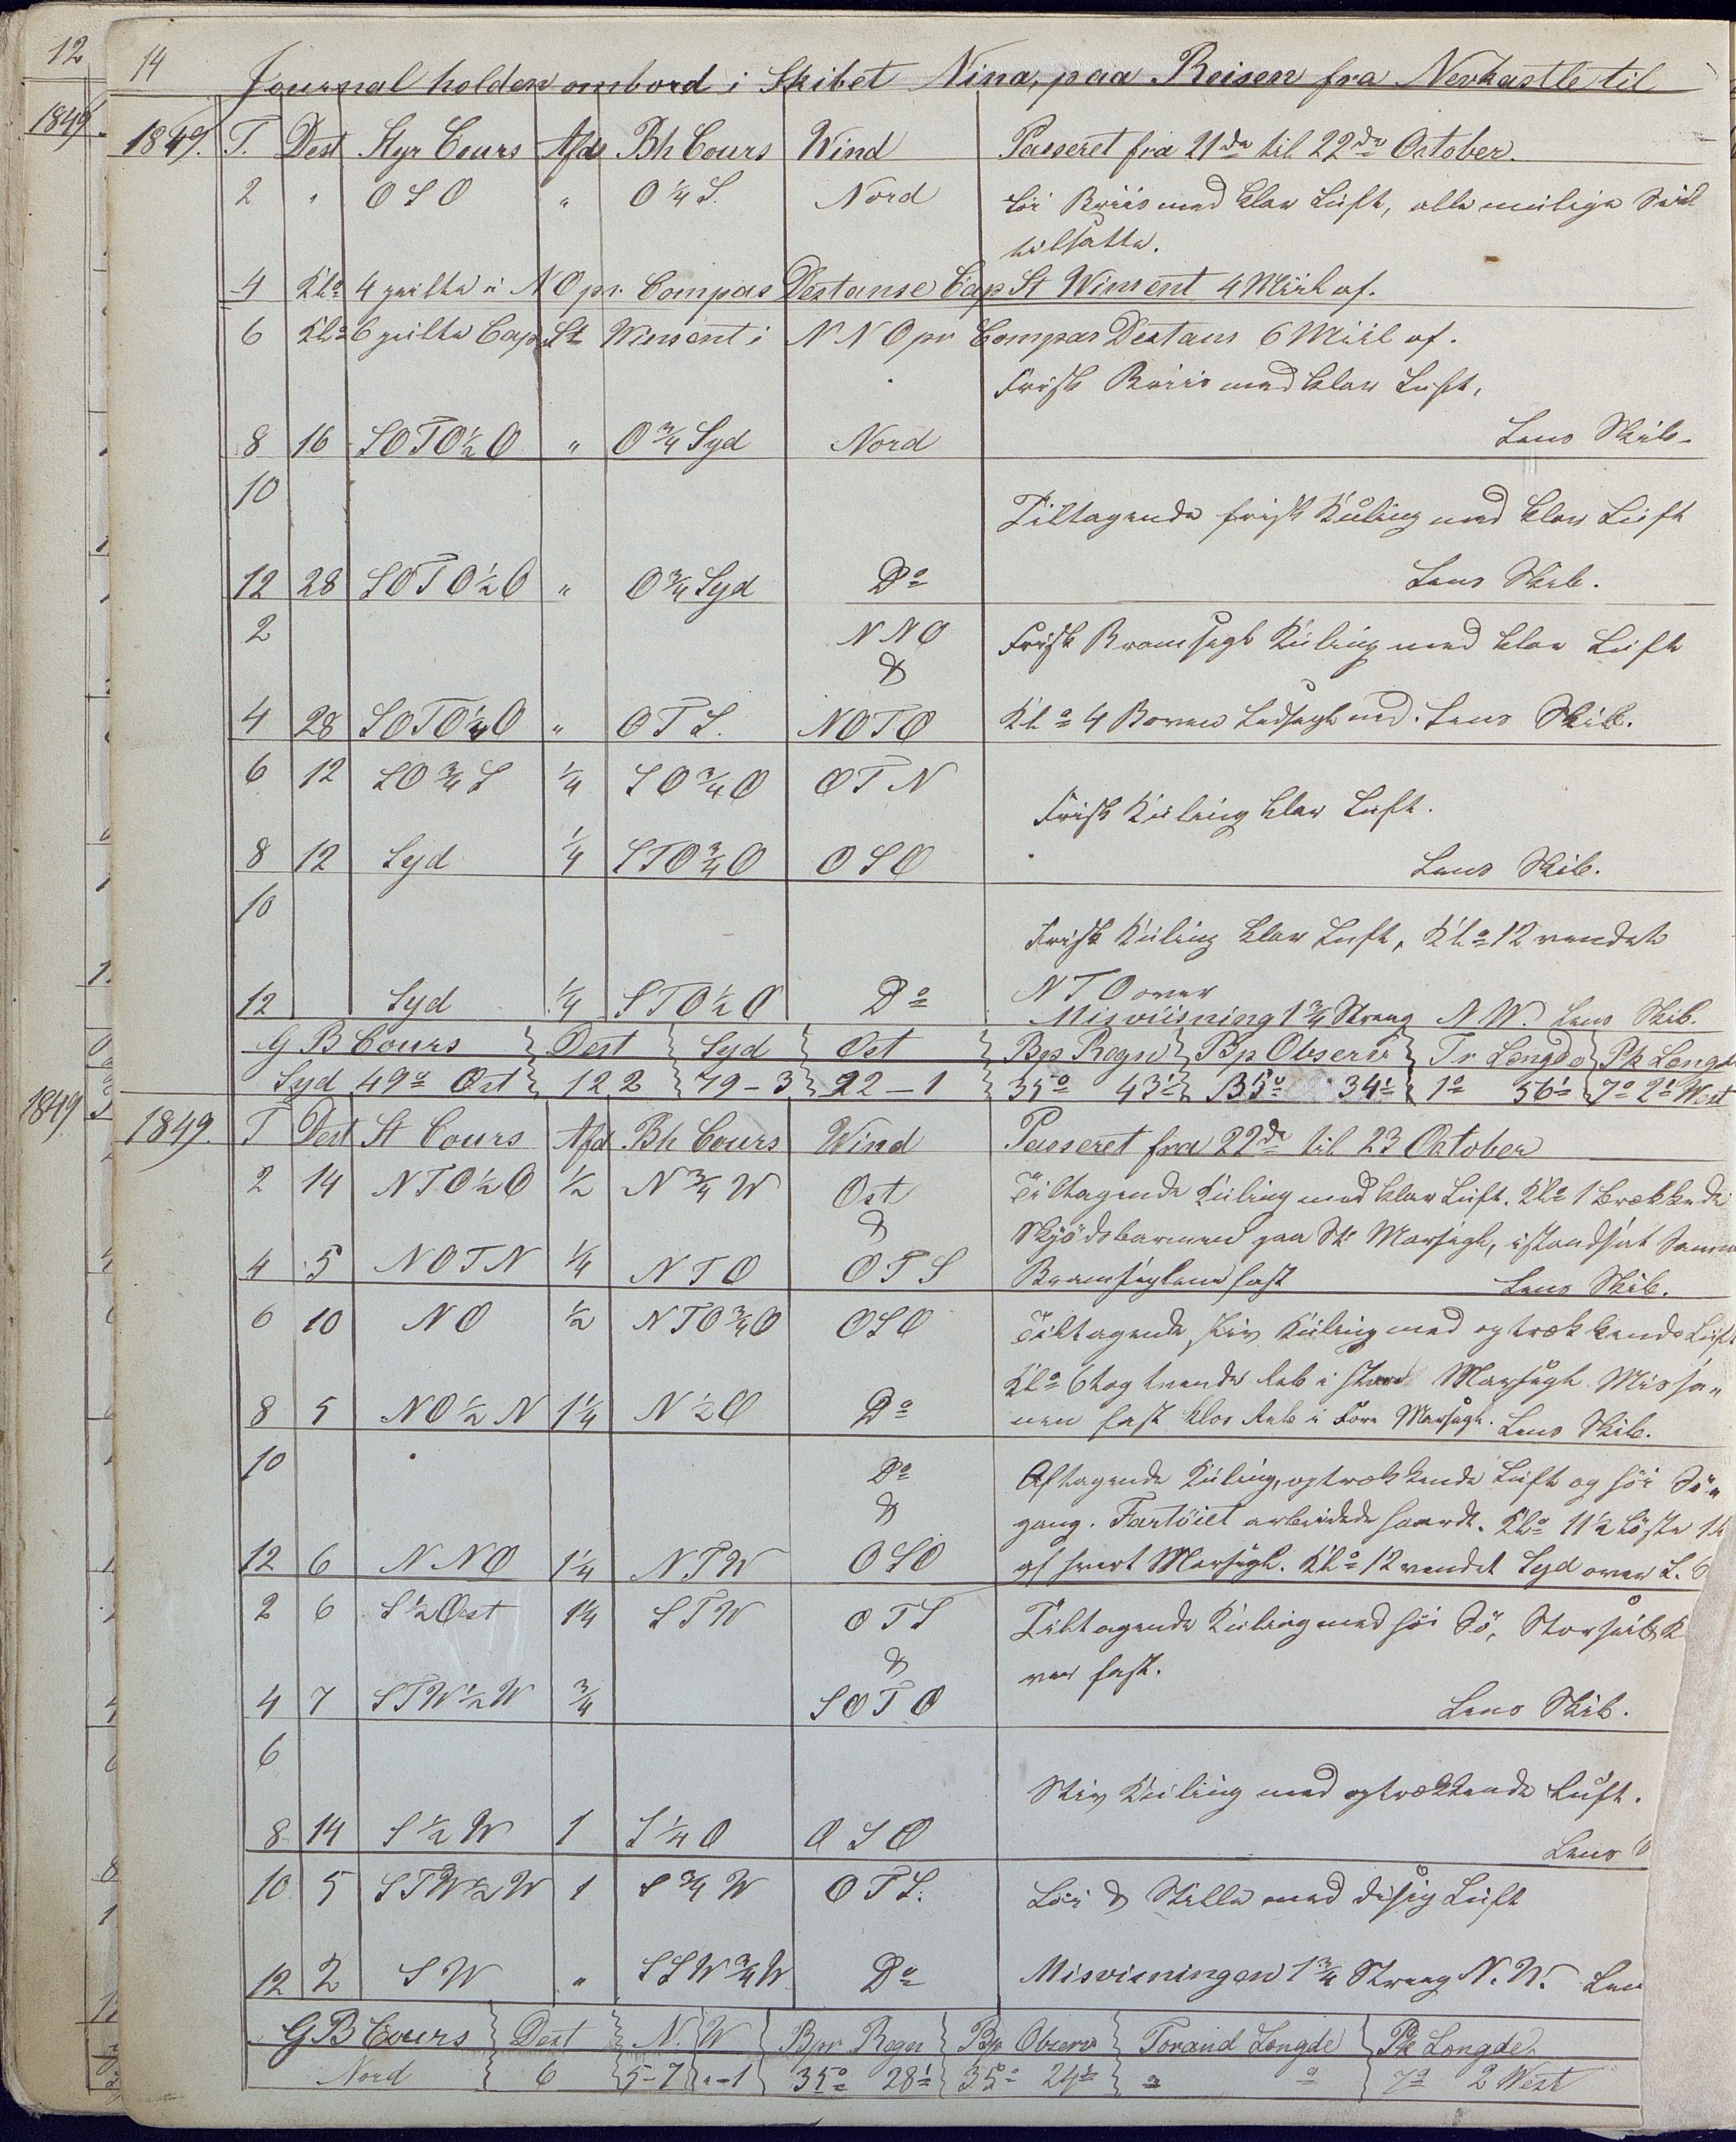 12
1849
1849
14
Journal holden ombord i Skibet Nina, paa Reisen fra Nevkastle til
1849. T. Dest Styr Cours Afd Bh Cours Wind Passeret fra 21de til 22de October.
2 " OSO " O 1/4 S. Nord Lör Briis med klar Luft, alle mulige Seil
tilsatte.
4 Kl= 4 peilte i NO pr. Compas Destanse Cap St Winsent 4 Miil af.
6 Kl= 6 peilte Cap St Winsent i NNO pr Compas Destans 6 Miil af.
Frisk Briis med klar Luft,
8 16 SOTO 1/2 O " O 3/4 Syd Nord Lens Skib.
10
Tiltagende frisk Kuling med klar Luft
12 28 SOTO 1/2 O " O 3/4 Syd Do Lens Skib.
2 NNO Frisk Bramsegls Kuling med klar Luft
&
4 28 SOTO 1/4 O " OTS. NOTO Kl= 4 Boven Ledsegl ned. Lens Skib.
6 12 SO 3/4 S 1/4 SO 3/4 O OTN
Frisk Kuling klar Luft.
8 12 Syd 1/4 STO 3/4 O OSO
Lens Skib.
10
Frisk Kuling klar Luft, Kl= 12 vendete
12 Syd 1/4 STO 1/2 O Do NTO over
Misviisning 1 3/4 Streng NW. Lens Skib.
G B Cours Dest Syd Ost Bp Regn Bp Observ Tr Lengde Pk Lengd
Syd 49o Ost 122 79-3 92-1 35o 43' 35o 34' 1o 56' 7o 2' West
1849. T Dest St Cours Afd Bh Cours Wind Passeret fra 22de til 23 October
2 14 NTO 1/2 O 1/2 N 3/4 W Ost Tiltagende Kuling med klar Luft. Kl= 1 brækkede
& Skjödsbarmen paa St Mersegl, istandsat Samme
4 5 NOTN 1/4 NTO OTS Bramseglene fast Lens Skib.
6 10 NO 1/2 NTO 3/4 O OSO Tiltagende stiv Kuling med optrækkende Luft
Kl= 6 tog trende Reb i Mersegl Missa-
8 5 NO 1/2 N 1 1/4 N 1/2 O Do nen fast klos Reb i Fore Mersegl. Lens Skib.
10 Do Aftagende Kuling, optrækkende Luft og höi Sö-
& gang. Fartöiet arbeidede haardt. Kl= 11 1/2 löste 1
12 6 NNO 1 1/4 NTW OSO af hvert Mersegl. Kl= 12 vendet Syd over L.
2 6 S 1/2 Ost 1 1/4 STW OTS Tiltagende Kuling med höi Sö, Storseil
& ver fast.
4 7 STW 1/2 W 3/4 SOTO
Lens Skib.
6
Stiv Kuling med optrækkende Luft.
8 14 S 1/2 W 1 S 1/4 O OSO
Lens
10 5 STW 1/2 W 1 S 3/4 W OTS. Löi & Stille med disig Luft
12 2 SW " SSW 3/4 W Do Misvisningen 1 3/4 Streng N.W. Len
GB Cours Dest N. W Bpr Regn Bp Observ Forand Longde Pk Longde
Nord 6 5-7 "-1 35o 28' 35o 24' " " 7o 2 West